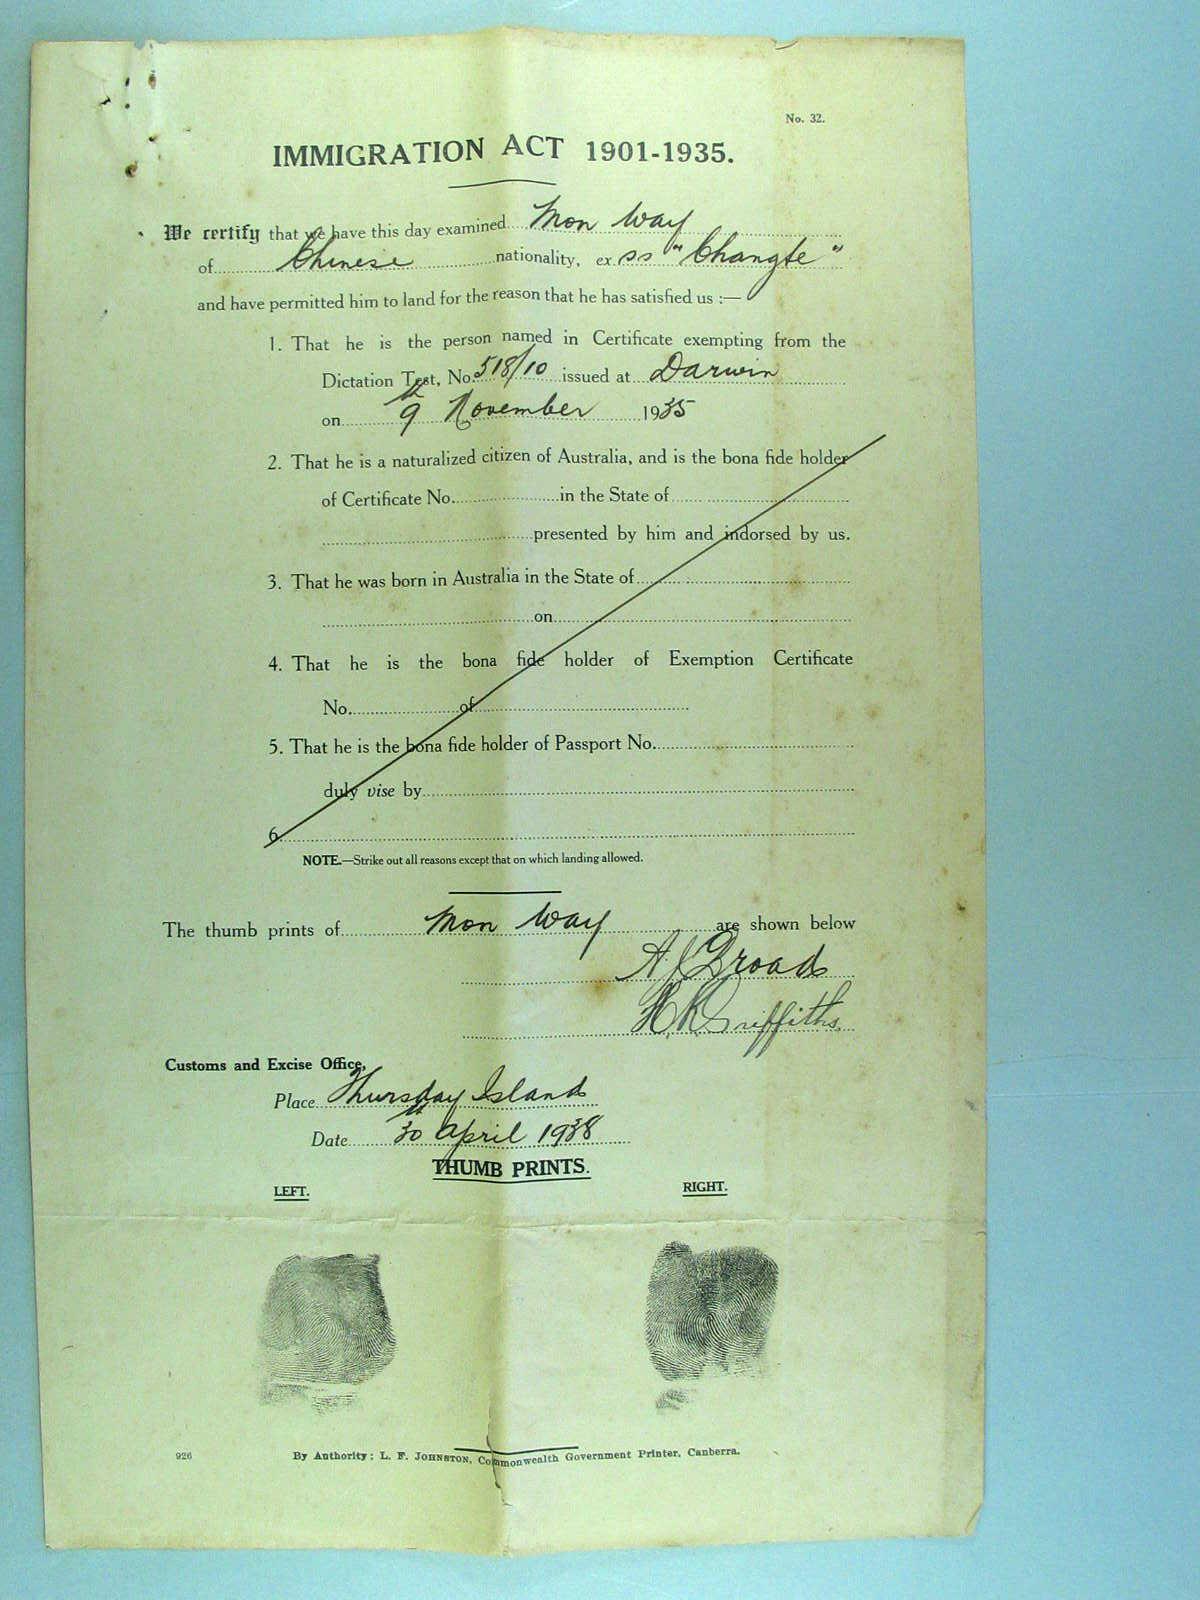 No. 32.
IMMIGRATION ACT 1901-1935.
We certify that we have this day examined Mon Way
of Chinese nationality, ex ss "Changte"
and have permitted him to land for the reason that he has satisfied us :—
1. That he is the person named in Certificate exempting from the
Dictation Test, No. 518/10 issued at Darwin
on 9th November 1935
2. That he is a naturalized citizen of Australia, and is the bona fide holder
of Certificate No. in the State of
presented by him and indorsed by us.
3. That he was born in Australia in the State of
on
4. That he is the bona fide holder of Exemption Certificate
No. of
5. That he is the bona fide holder of Passport No.
duly vise by
6.
NOTE.—Strike out all reasons except that on which landing allowed.
The thumb prints of Mon Way are shown below
A J Broad
H. R. Griffiths
Customs and Excise Office,
Place Thursday Island
Date 30th April 1938
THUMB PRINTS.
LEFT. RIGHT.
926 By Authority: L. F. JOHNSTON, Commonwealth Government Printer, Canberra.